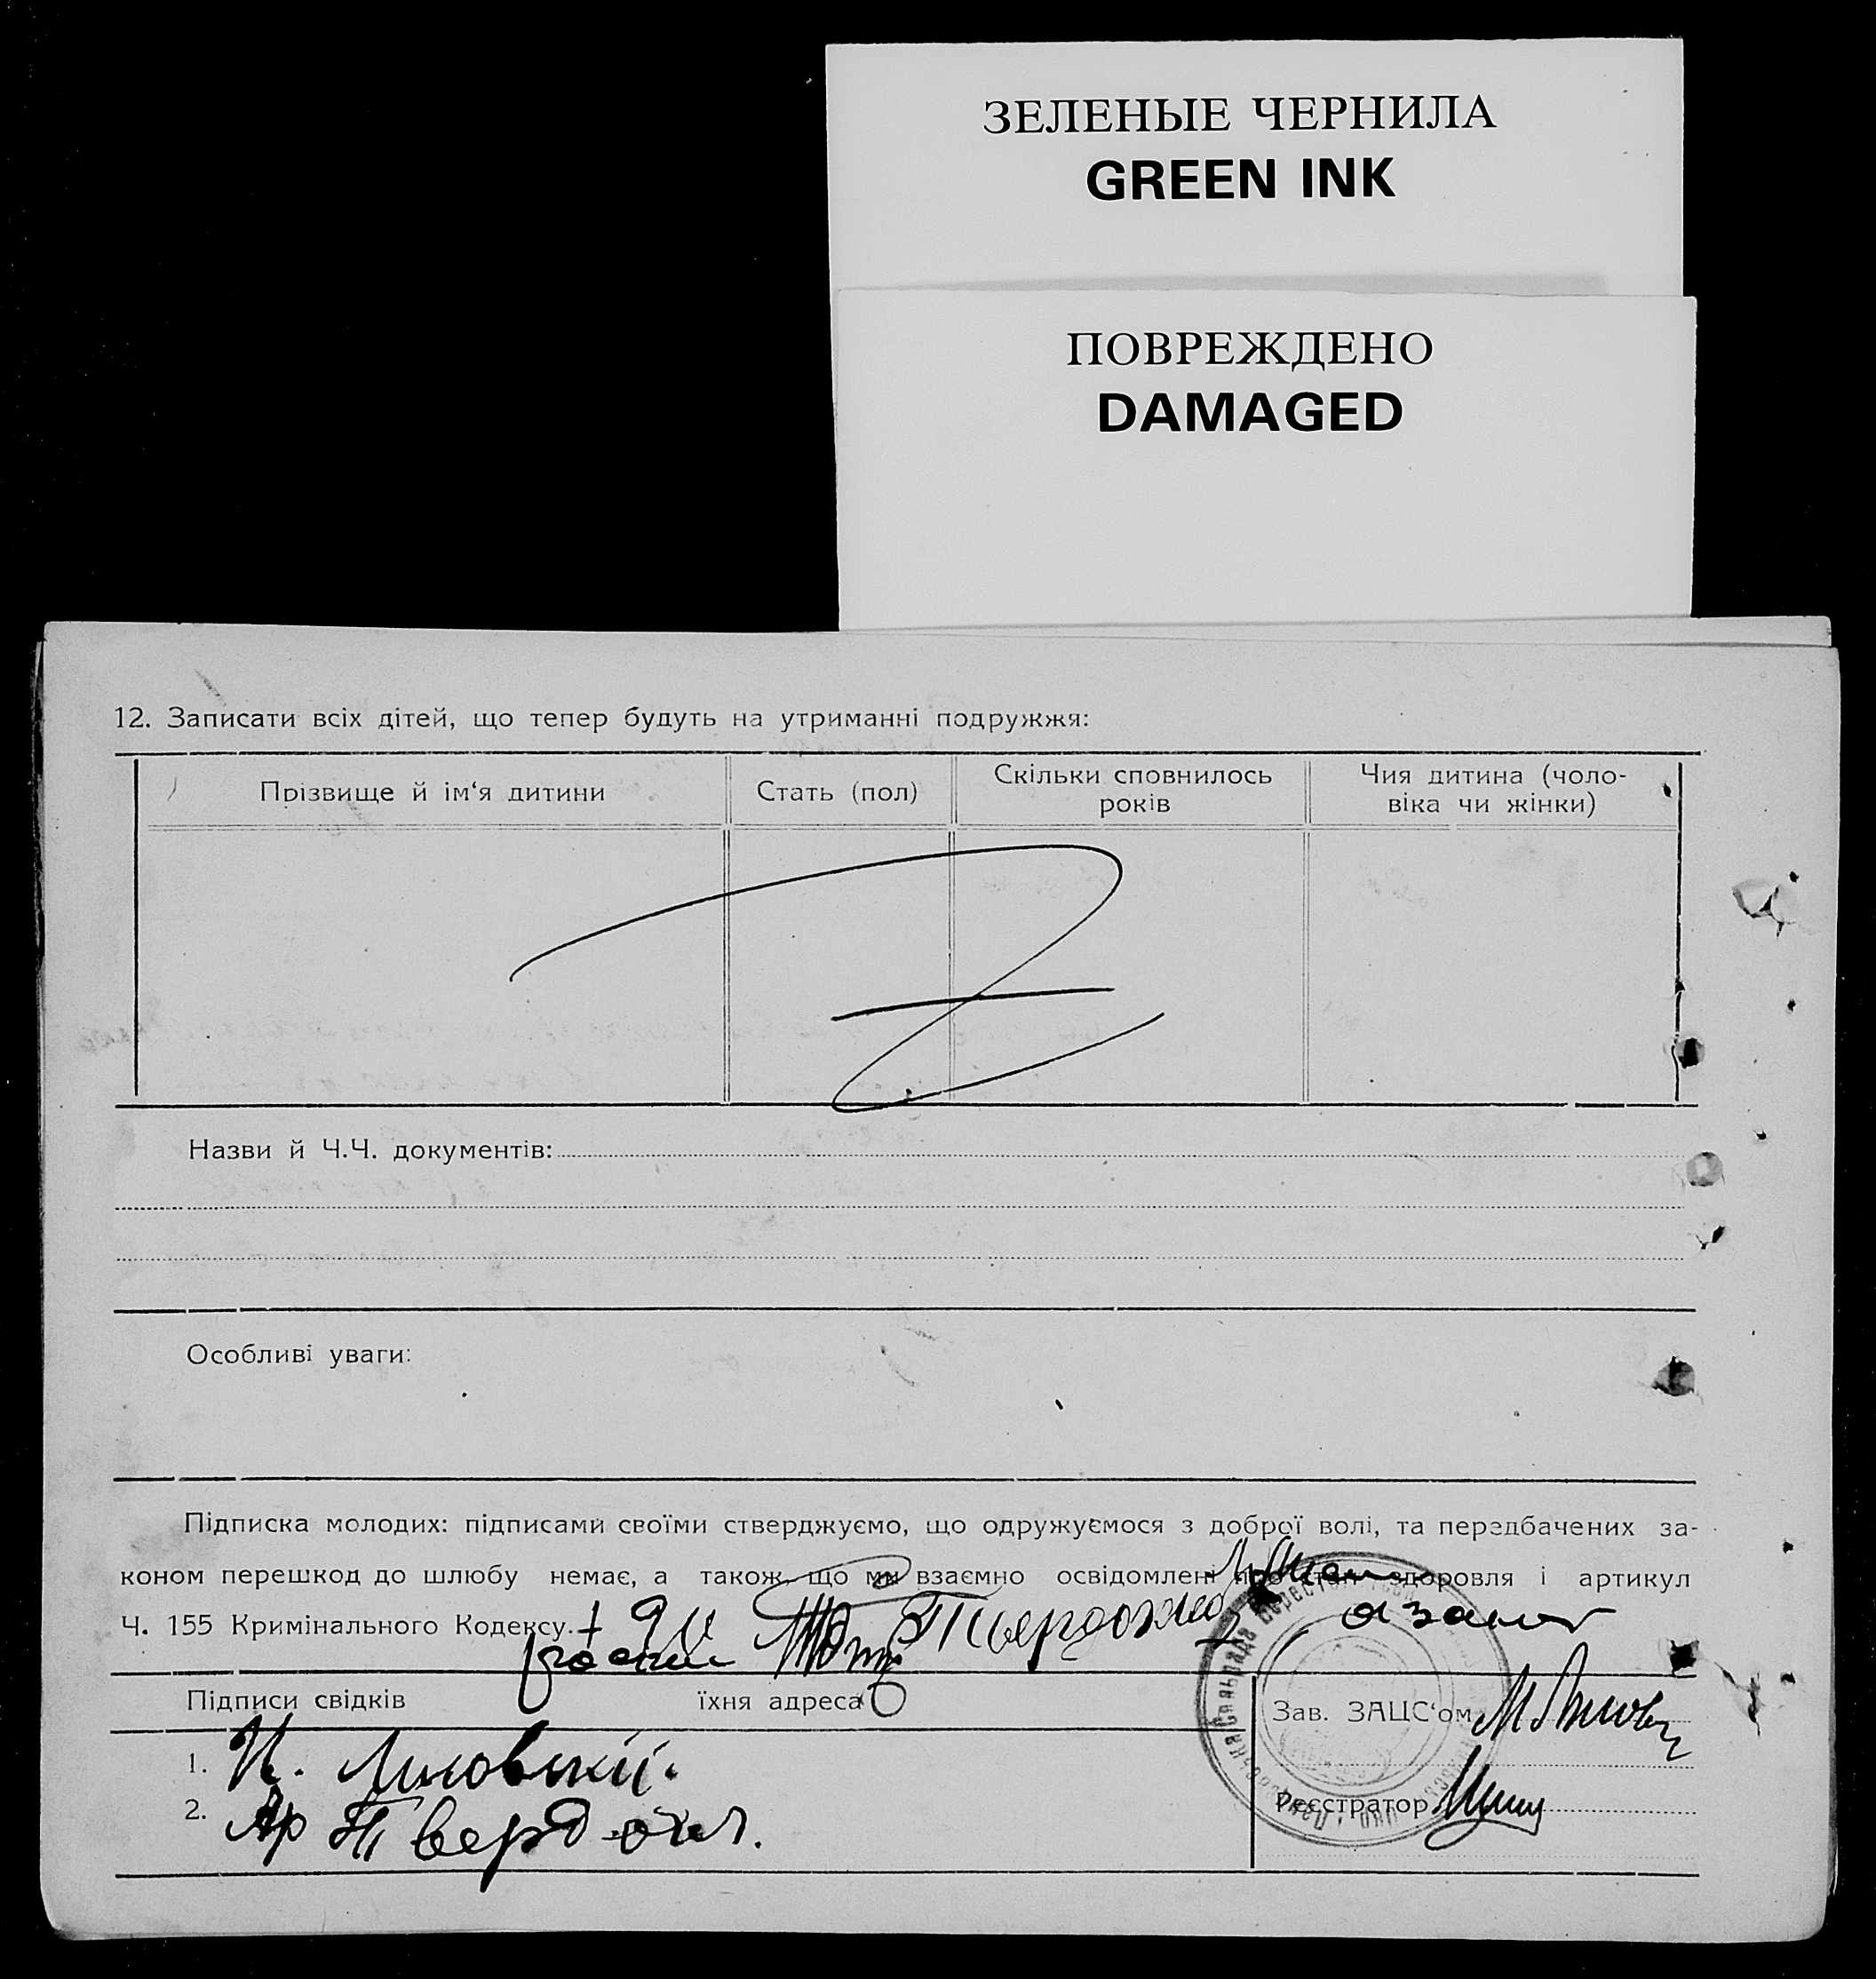 ЗЕЛЕНЫЕ ЧЕРНИЛА
GREEN INK
ПОВРЕЖДЕНО
DAMAGED
12. Записати всіх дітей, що тепер будуть на утриманні подружжя:
Прізвище й ім‘я дитини
Стать (пол)
Скільки сповнилось
років
Чия дитина (чоло-
віка чи жінки)
Назви й Ч.Ч. документів:
Особливі уваги:
Підписка молодих: підписами своїми стверджуємо, що одружуємося з доброї волі, та передбачених за-
коном перешкод до шлюбу немає, а також, що ми взаємно освідомлені про стан здоровля і артикул
Ч. 155 Кримінального Кодексу.
Підписи свідків
їхня адреса
Зав. ЗАЦС‘ом
1.
2.
Твердохл.
Реєстратор